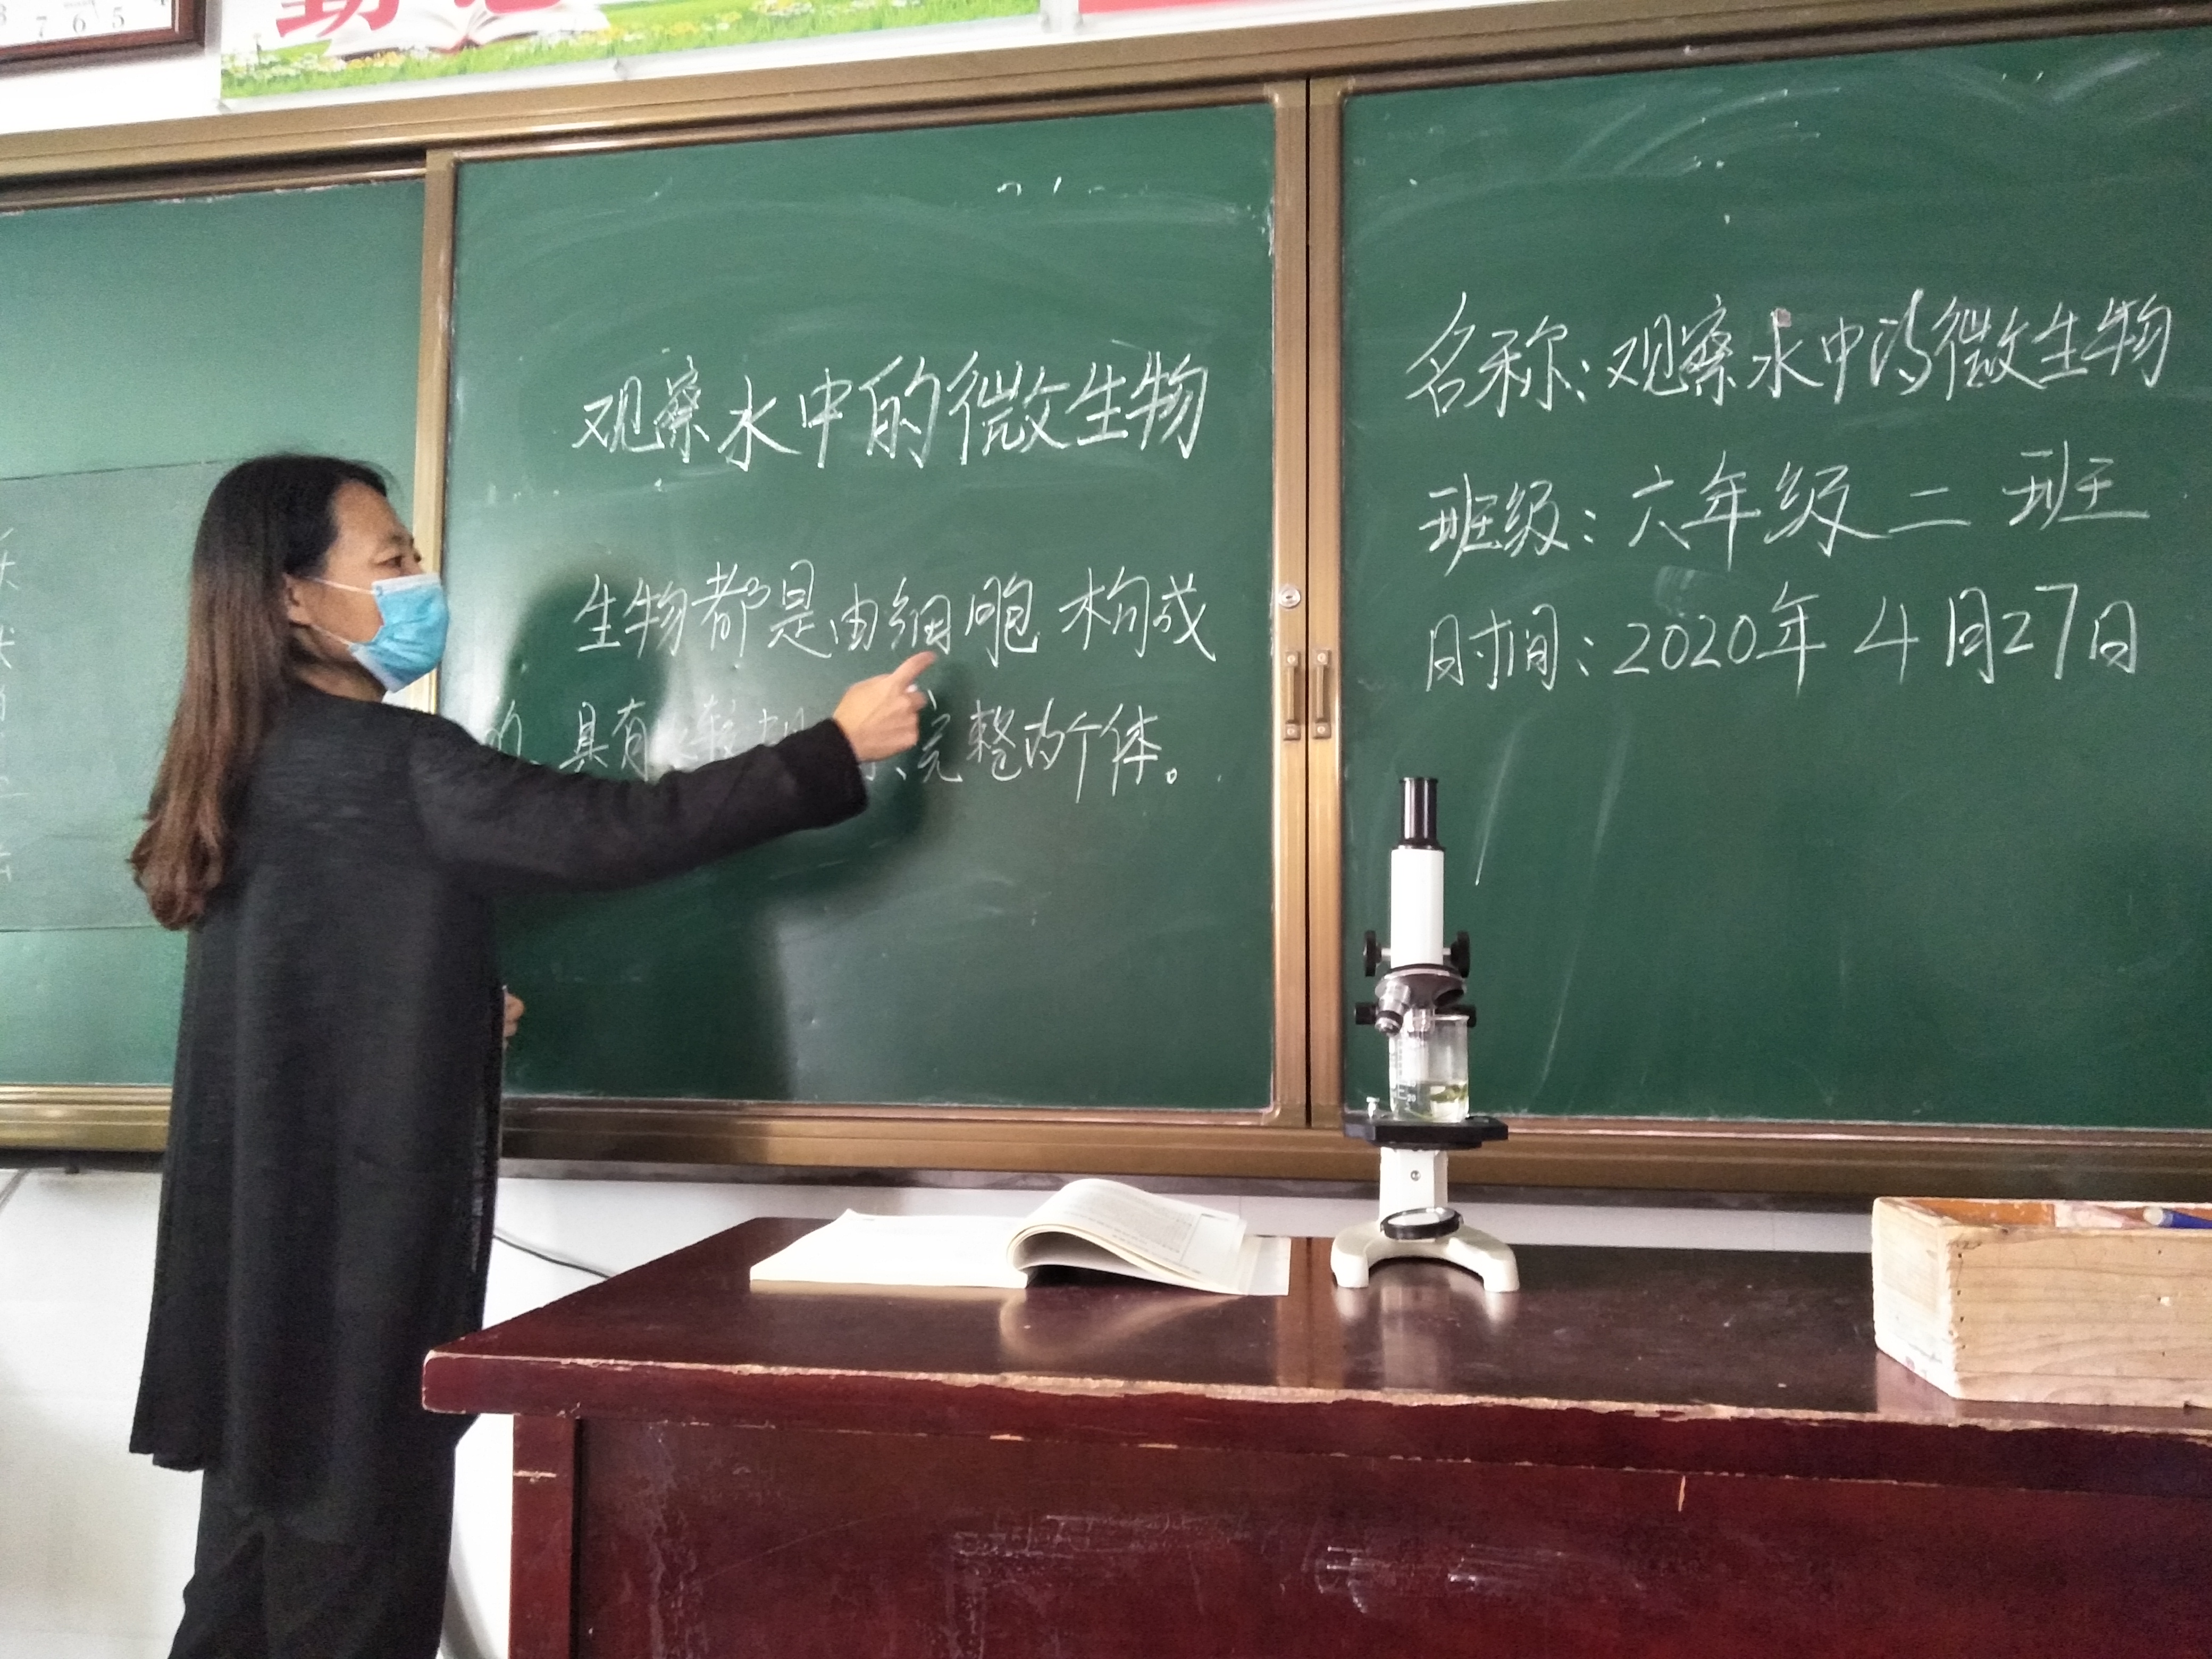 7 6 5
勤
观察水中的微生物
生物都是由细胞构成
的 具有 完整的个体。
名称:观察水中的微生物
班级:六年级二班
时间:2020年4月27日